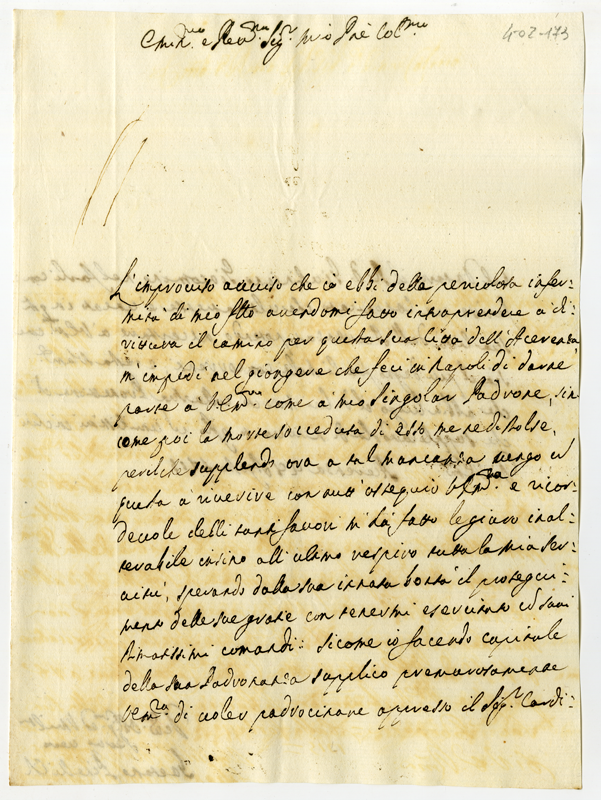 Emin.mo e Rev.mo Sig.r mio P.ne Col.mo
402-173
L'improviso avviso che io ebbi della pericolosa infer=
mità di mio f.llo avendomi fatto intraprendere a di=
rittura il camino per questa sua Città dell'Acerenza
m'impedì nel giongere che feci in Napoli di darne
parte a V.Em.za come a mio singolar Padrone, sin
come poi la morte socceduta di esso me ne distolse,
perilche supplendo ora a tal mancanza vengo co
questa a riverire con tutt'ossequio V.Em.za e ricor=
devole delli tanti favori m'ha fatto le giuro inal=
terabile insino all'ultimo respiro tutta la mia ser=
vitù, sperando dalla sua innata bontà il prosegui=
mento delle sue grazie con tenermi esercitato co' suoi
stimatissimi comandi: sicome io facendo capitale
della sua Padronanza supplico premurosamente
V.Em.za di voler padrocinare appresso il Sig.r Cardi=